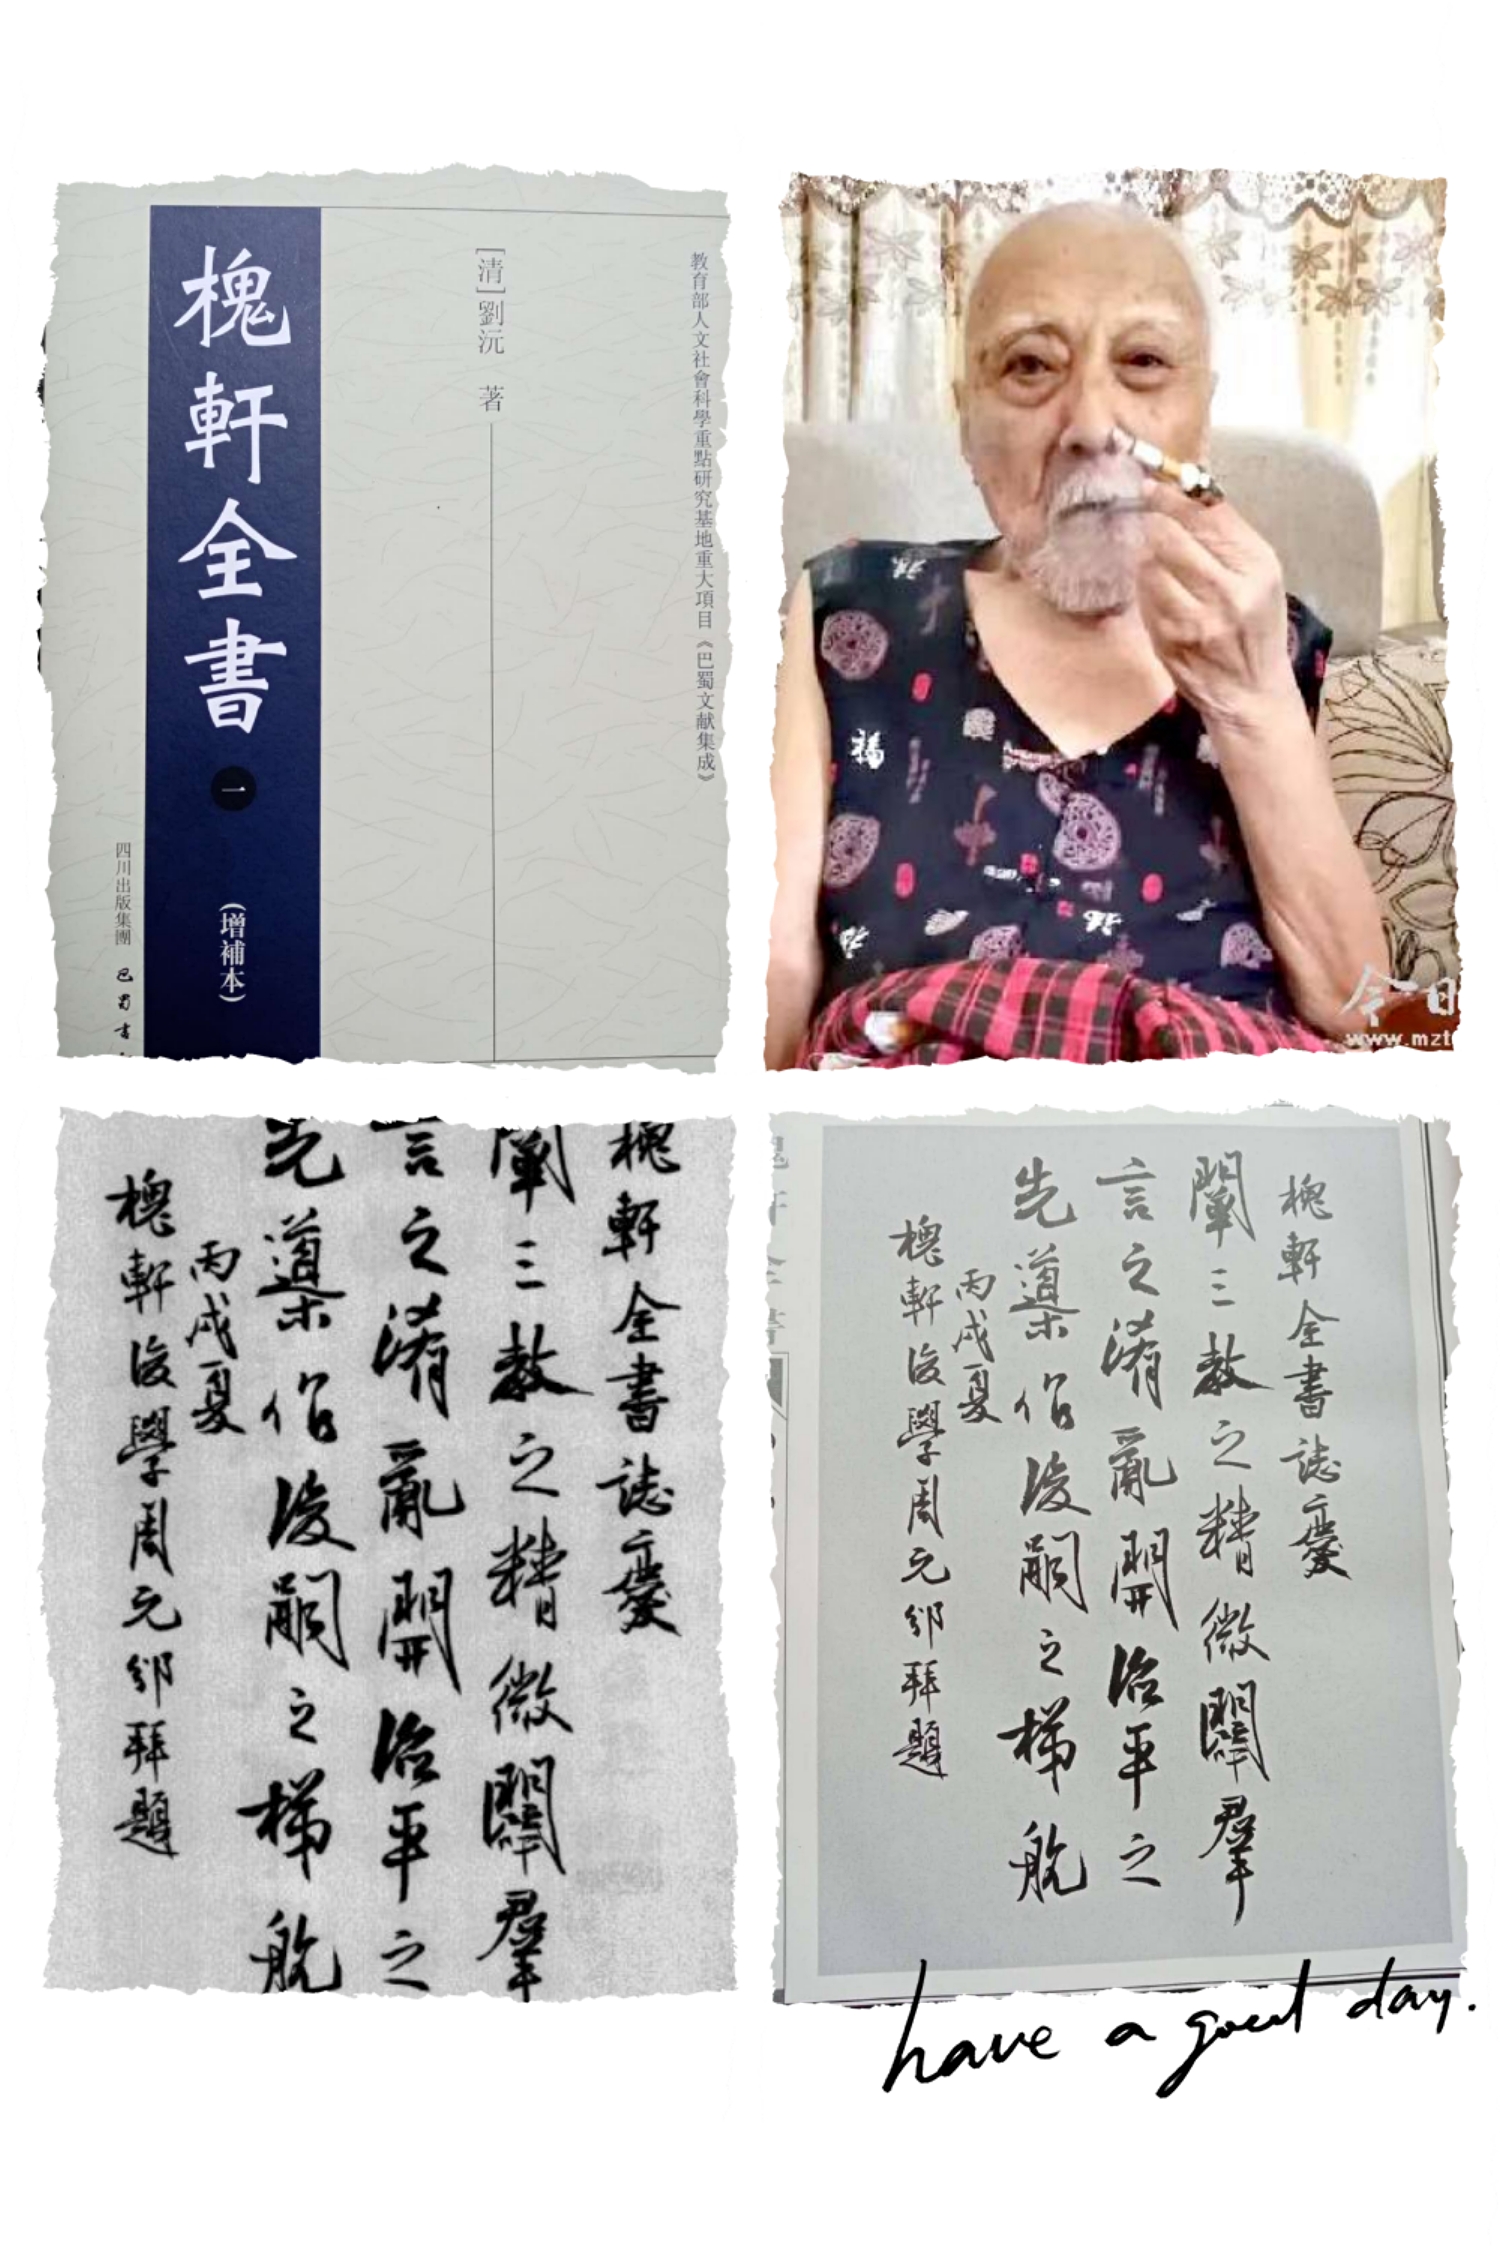 教育部人文社會科學重點研究基地重大項目《巴蜀文献集成》
[清]劉沅 著
槐軒全書 一 (增補本)
四川出版集團 巴蜀書
福
今日
www.mzt
槐軒全書誌慶
闡三教之精微闢羣
言之淆亂開治平之
先導作後嗣之梯航
丙戌夏
槐軒後學周元邠拜題
槐軒全書誌慶
闡三教之精微闢羣
言之淆亂開治平之
先導作後嗣之梯航
丙戌夏
槐軒後學周元邠拜題
have a good day.